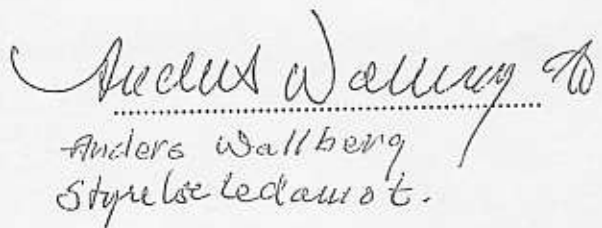 Anders Wallberg
Anders Wallberg
Styrelseledamot.